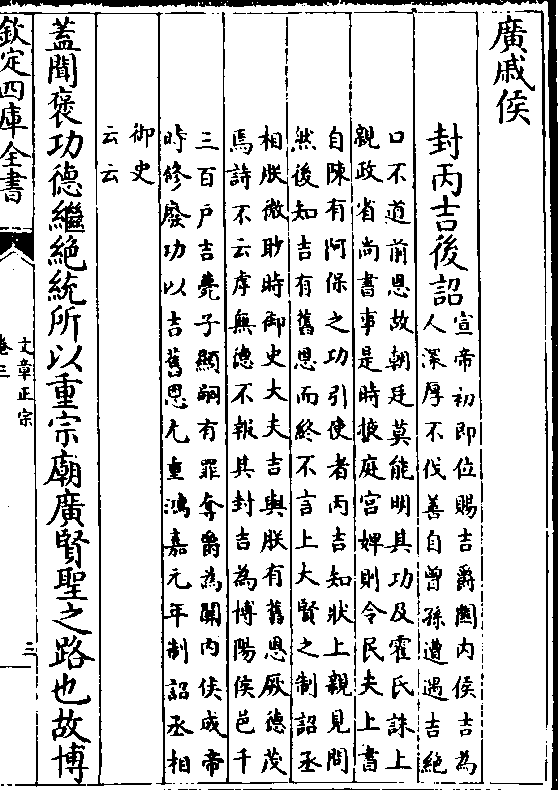 廣戚侯
封丙吉後詔
宣帝初即位賜吉爵關内侯吉為
人深厚不伐善自曾孫遭遇吉絶
口不道前恩故朝廷莫能明其功及霍氏誅上
親政省尚書事是時掖庭宫婢則令民夫上書
自陳有阿保之功引使者丙吉知狀上親見問
然後知吉有舊恩而終不言上大賢之制詔丞
相朕微眇時御史大夫吉與朕有舊恩厥德茂
焉詩不云虖無德不報其封吉為博陽侯邑千
三百戸吉薨子顯嗣有罪奪爵為關内侯成帝
時修廢功以吉舊恩尤重鴻嘉元年制詔丞相
御史
云云
蓋聞褒功德繼絶統所以重宗廟廣賢聖之路也故博
欽定四庫全書
文章正宗
卷三
三